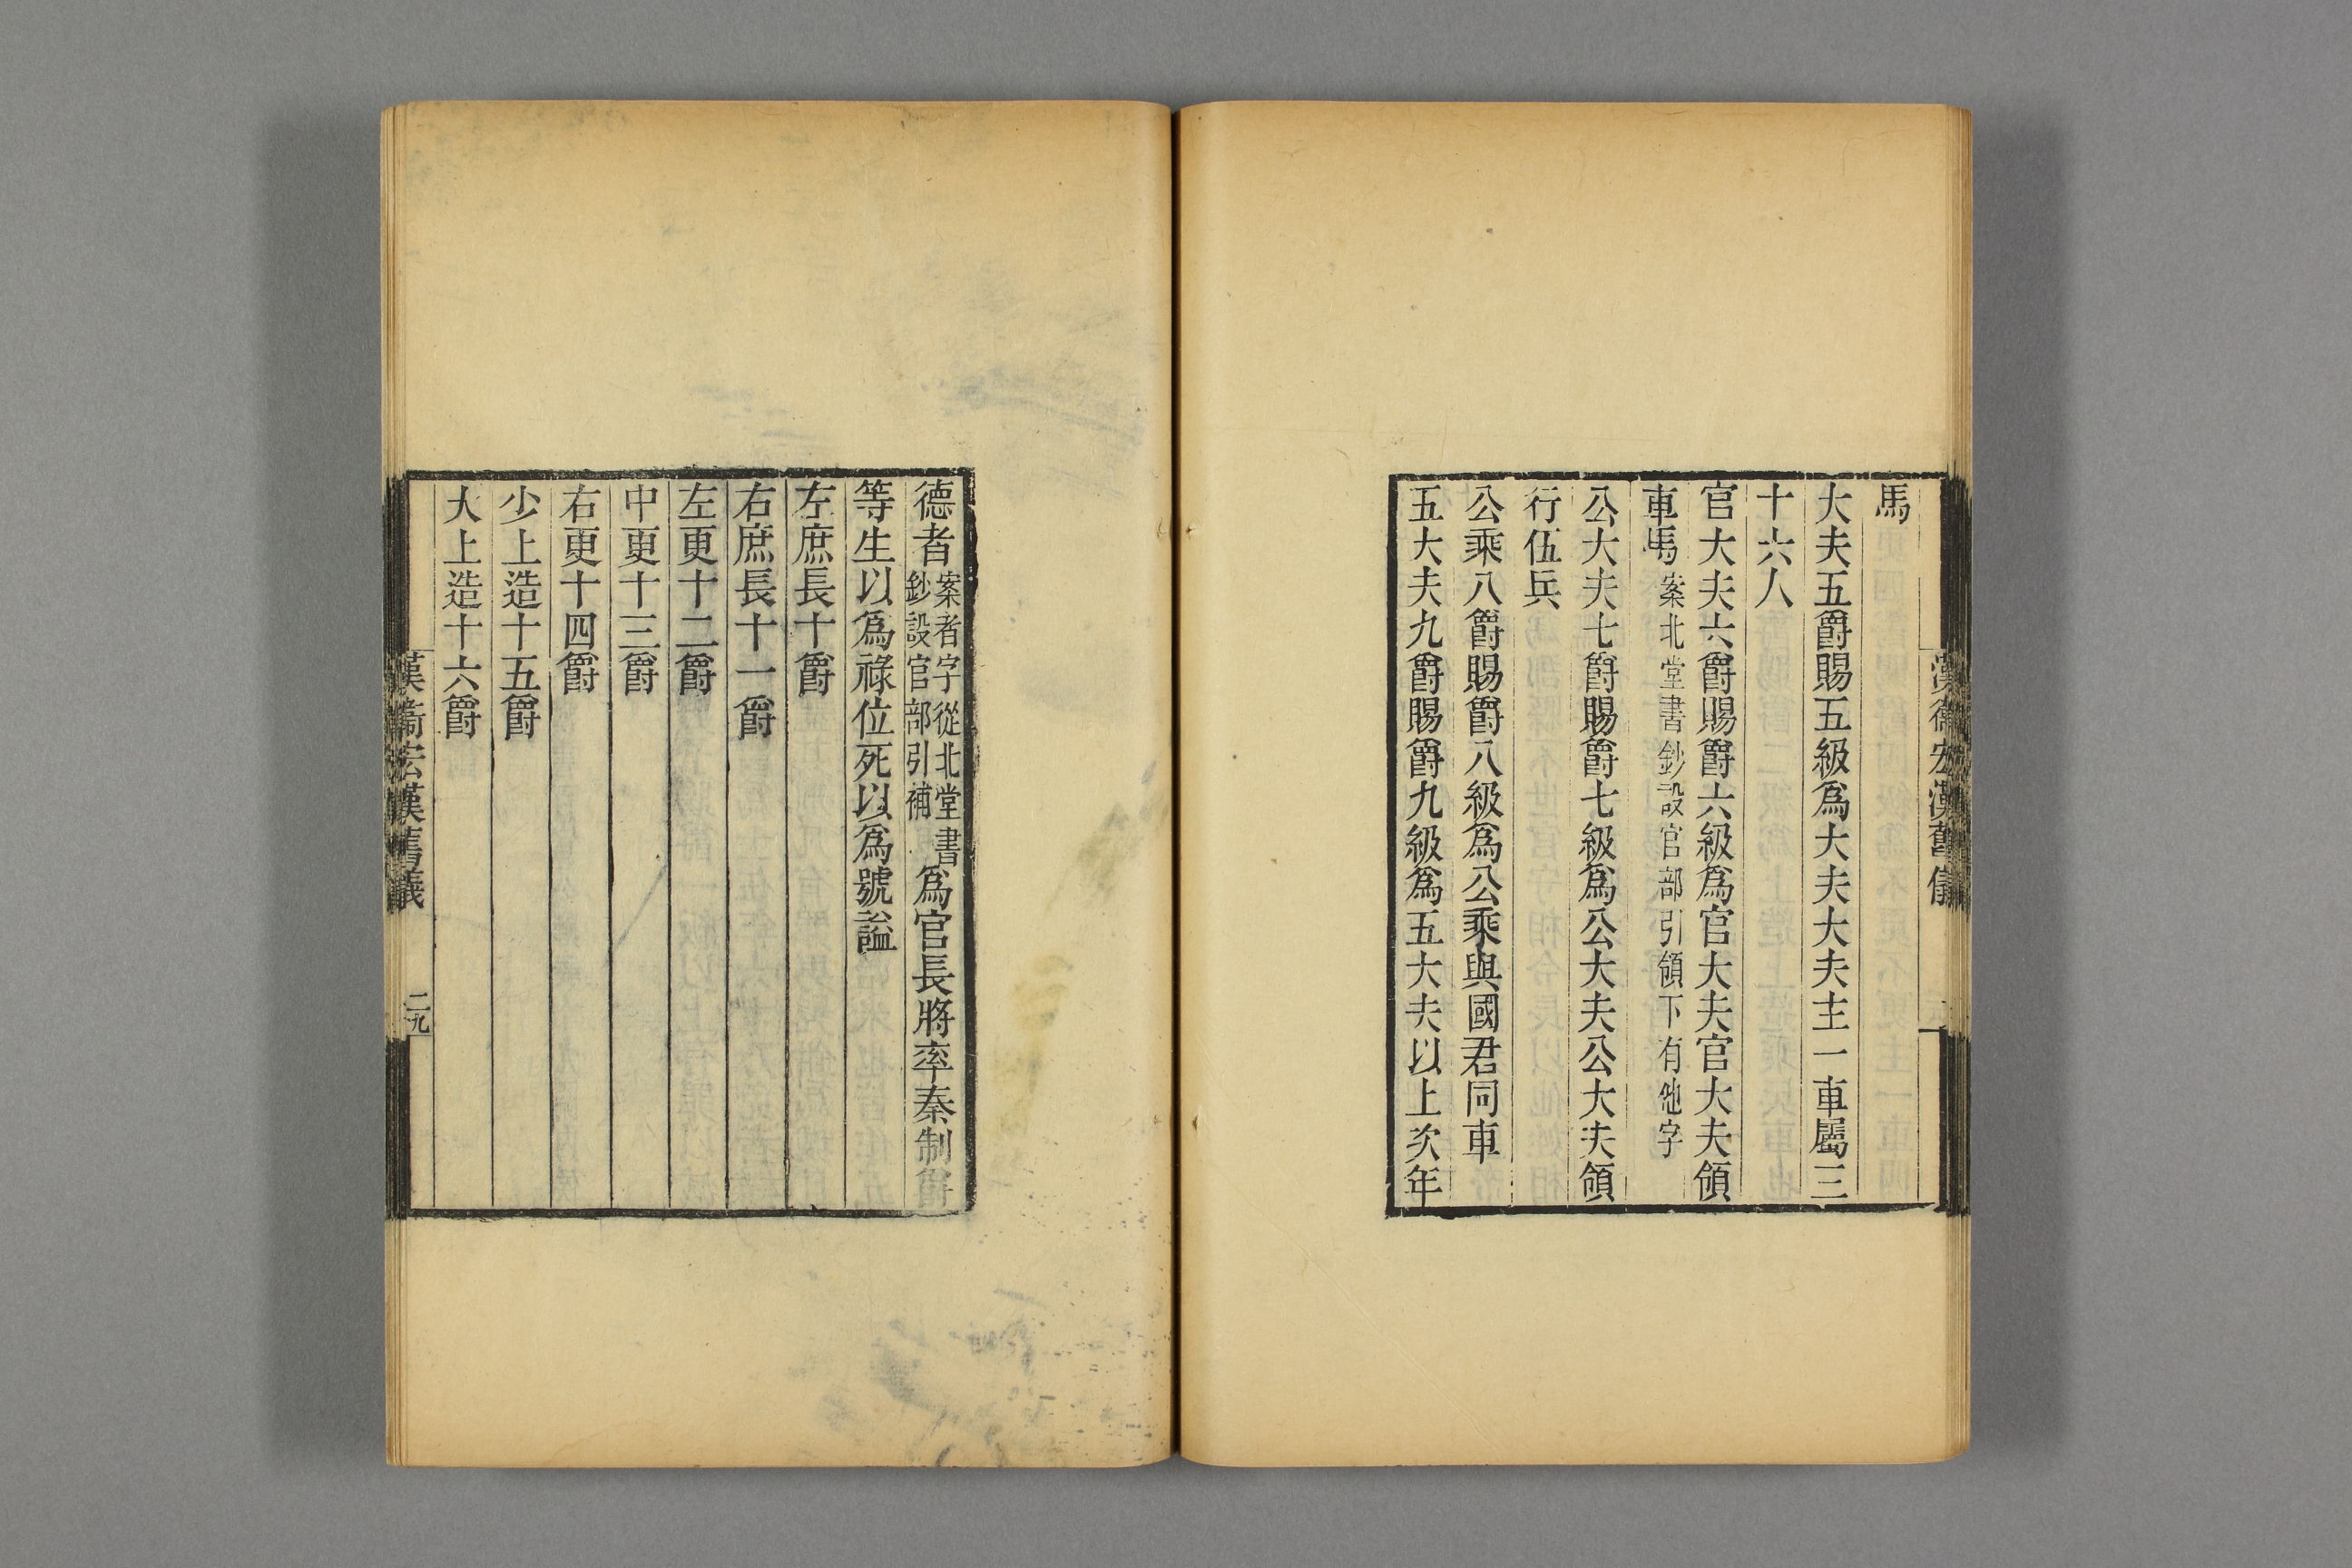 漢衞宏漢舊儀
馬
大夫五爵賜五級爲大夫大夫主一車屬三
十六人
官大夫六爵賜爵六級爲官大夫官大夫領
車馬案北堂書鈔設官部引領下有他字
公大夫七爵賜爵七級爲公大夫公大夫領
行伍兵
公乘八爵賜爵八級爲公乘與國君同車
五大夫九爵賜爵九級爲五大夫以上次年
德者案者字從北堂書鈔設官部引補爲官長將率秦制爵
等生以爲祿位死以爲號謚
左庶長十爵
右庶長十一爵
左更十二爵
中更十三爵
右更十四爵
少上造十五爵
大上造十六爵
漢衞宏漢舊儀
二九